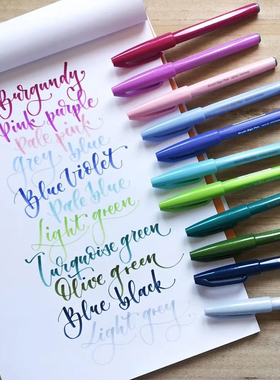 Burgundy
Pink purple
Pale pink
Grey blue
Blue violet
Pale blue
Light green
Turquoise green
Olive green
Blue black
Light grey